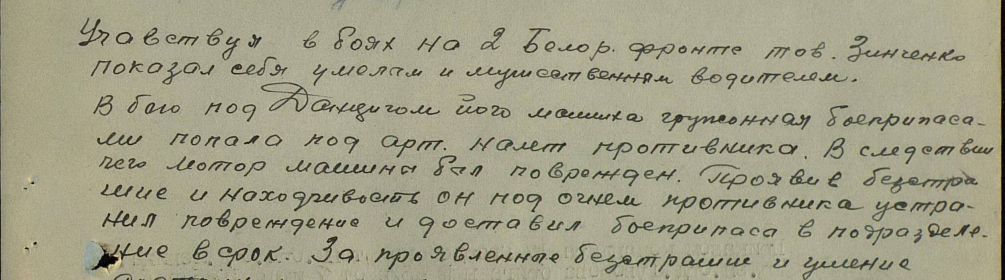 Учавствуя в боях на 2 Белор. фронте тов. Зинченко
показал себя умелым и мужественным водителем.
В бою под Данцигом його машина гружонная боеприпаса-
ми попала под арт. налет противника. В следствии
чего мотор машины был поврежден. Проявив безстра
шие и находчивость он под огнем противника устра-
нил повреждение и доставил боеприпаса в подразделе-
ние в срок. За проявленные безстрашие и умение